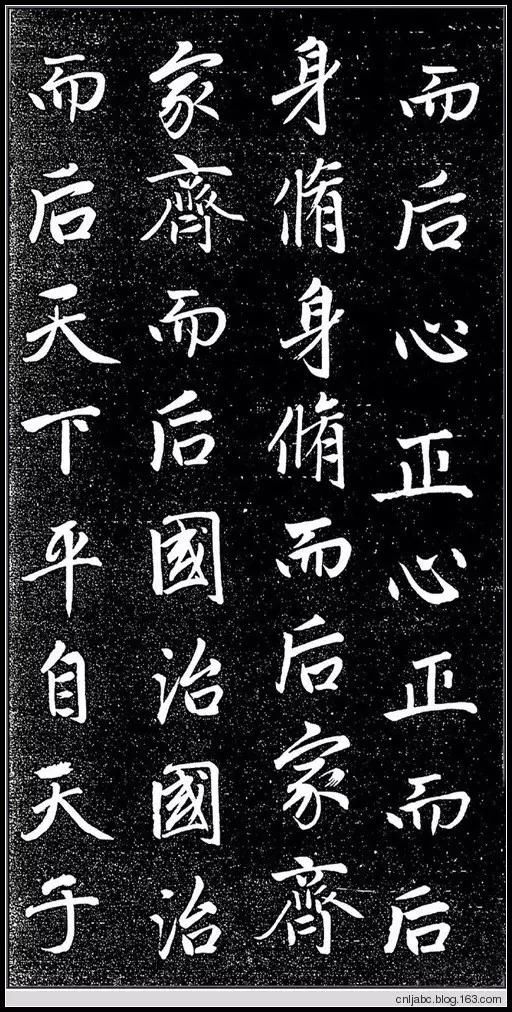 而后心正心正而后
身脩身脩而后家齊
家齊而后國治國治
而后天下平自天子
cnljabc.blog.163.com